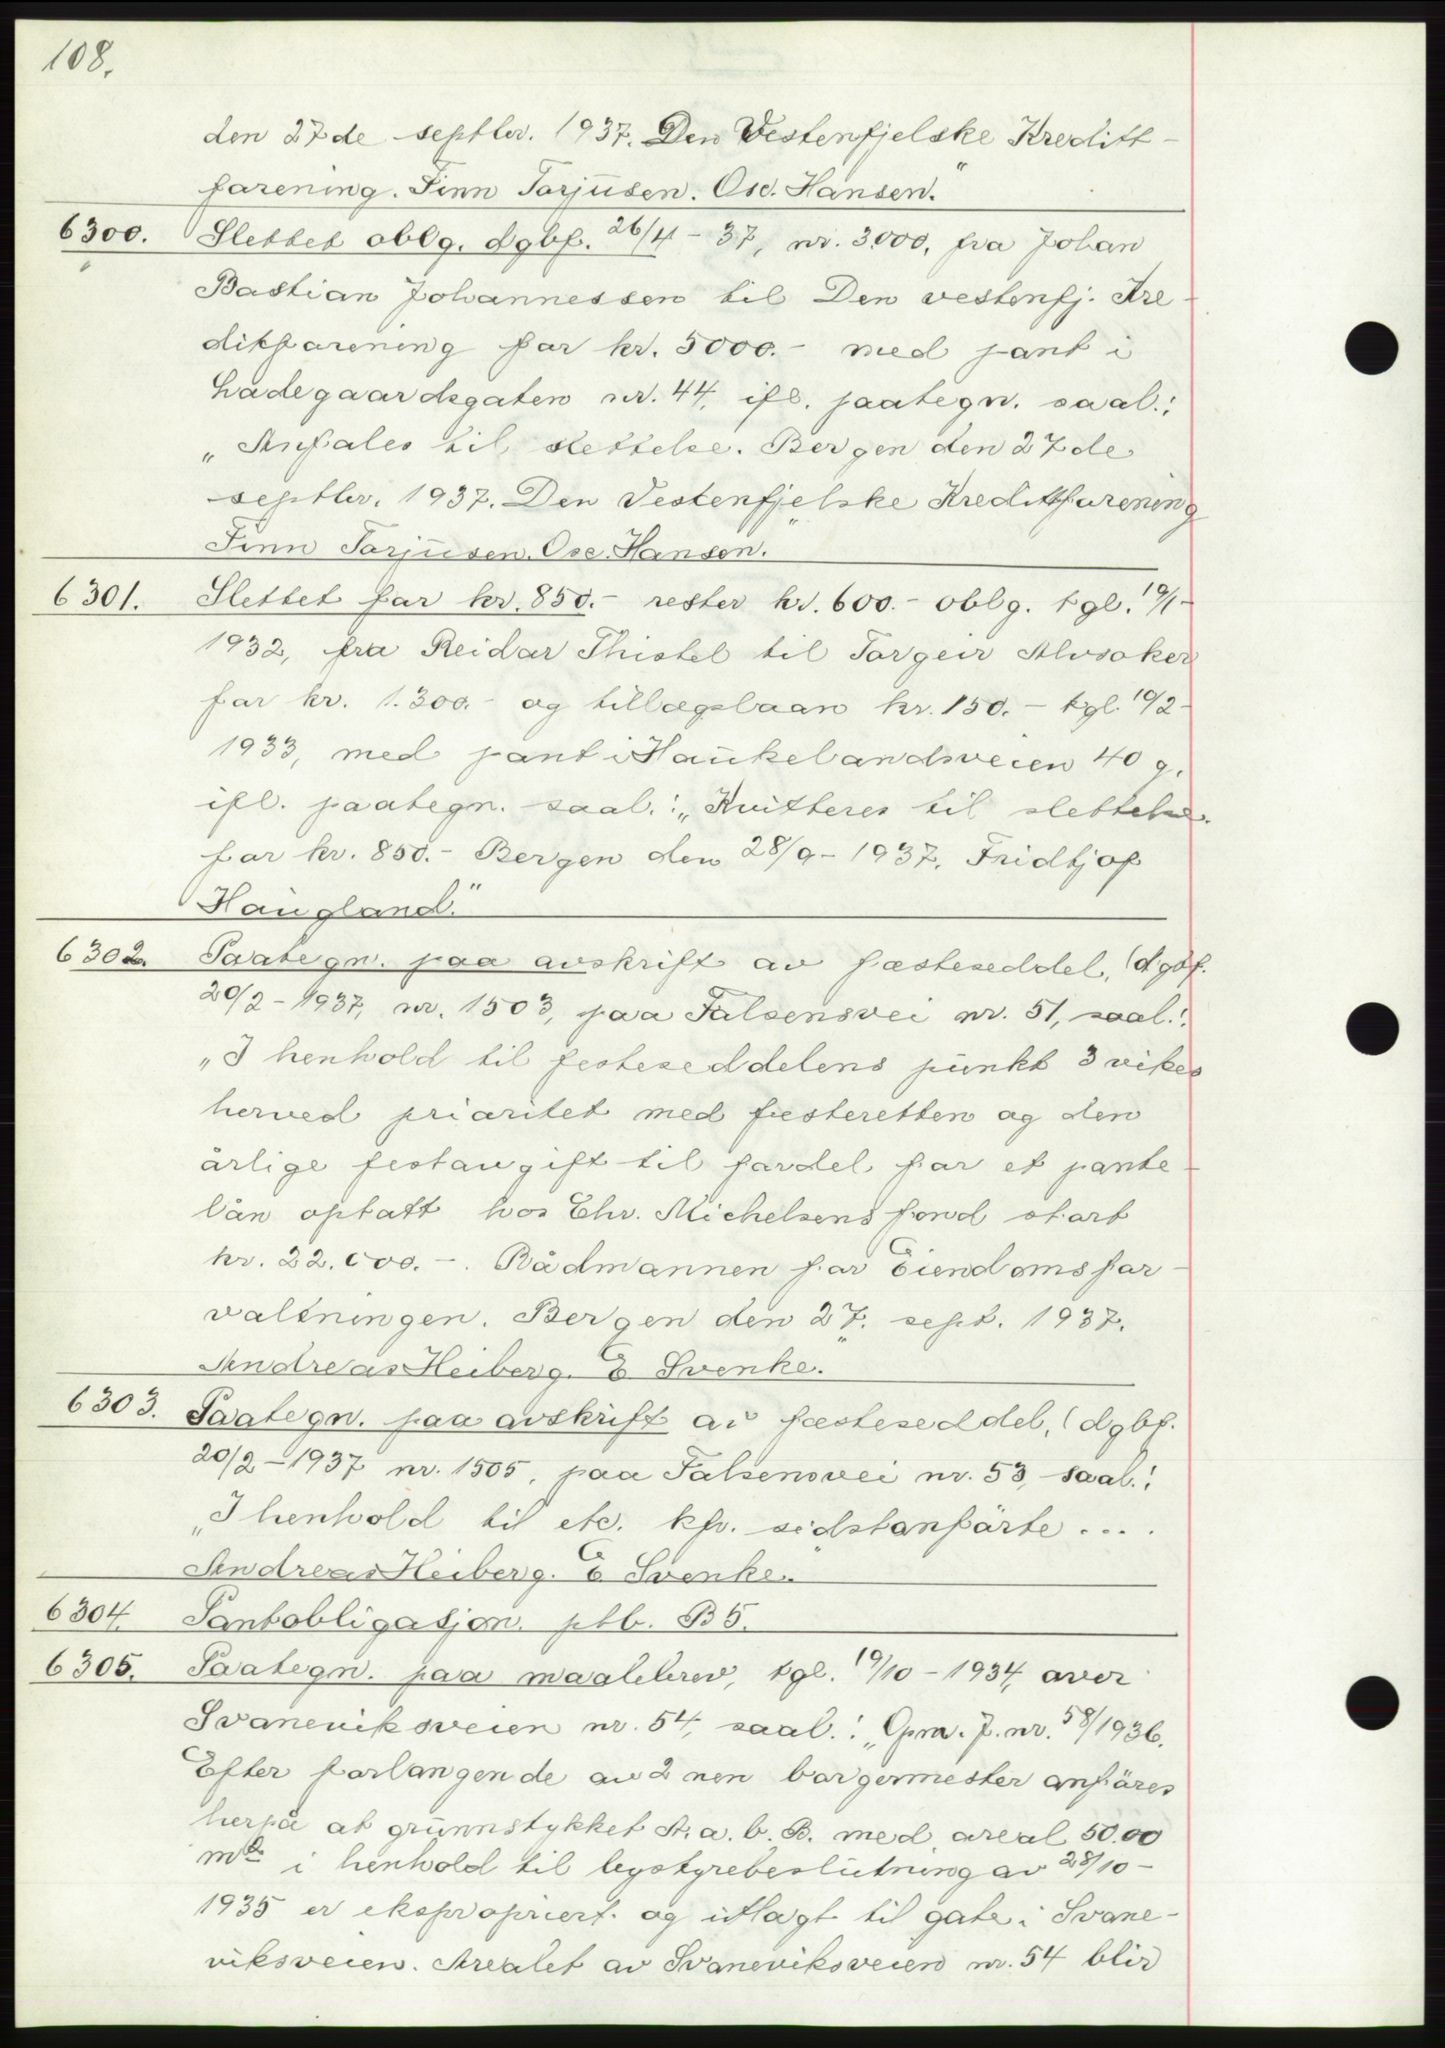 108.
den 27de septbr. 1937. Den Vestenfjelske Kreditt-
forening. Finn Torjusen. Osc. Hansen."
6300. Slettet oblg. dgbf. 26/4 - 37, nr. 3000, fra Johan
Bastian Johannessen til Den vestenfj. Kre-
dittforening for kr. 5000.- med pant i
Ladegaardsgaten nr. 44, ifl. paategn. saal.:
„Anfales til slettelse. Bergen den 27de
septbr. 1937. Den Vestenfjelske Kredittforening
Finn Torjusen. Osc. Hansen."
6301. Slettet for kr. 850.- rester kr. 600.- oblg. tgl. 19/1-
1932, fra Reidar Thistel til Torgeir Alvsaker
for kr. 1.300.- og tillægslaan kr. 150.- tgl. 10/2-
1933, med pant i Haukelandsveien 40 g.
ifl. paategn. saal.: „Kvitteres til slettelse
for kr. 850.- Bergen den 28/9 - 1937. Fridtjof
Haugland."
6302. Paategn. paa avskrift av fæsteseddel, (dgbf.
20/2 - 1937, nr. 1503, paa Falsensvei nr. 51, saal.:
„I henhold til festeseddelens punkt 3 vikes
herved prioritet med festeretten og den
årlige festeavgift til fordel for et pante-
lån optatt hos Chr. Michelsens fond stort
kr. 22.000.-. Rådmannen for Eiendomsfor-
valtningen. Bergen den 27. sept. 1937.
Andreas Heiberg. E Svenke."
6303. Paategn. paa avskrift av fæsteseddel, (dgbf.
20/2 - 1937 nr. 1505, paa Falsensvei nr. 53, saal.:
„I henhold til etc. kfr. sidstanførte ....
Andreas Heiberg. E Svenke."
6304. Pantobligasjon. ptb. B5.
6305. Paategn. paa maalebrev, tgl. 19/10 - 1934, over
Svaneviksveien nr. 54, saal.: „Opm. J. nr. 58/1936.
Efter forlangende av 2nen borgermester anføres
herpå at grunnstykket A. a. b. B. med areal 50.00
m2 i henhold til bystyrebeslutning av 28/10 -
1935 er ekspropriert og utlagt til gate i Svane-
viksveien. Arealet av Svaneviksveien nr. 54 blir